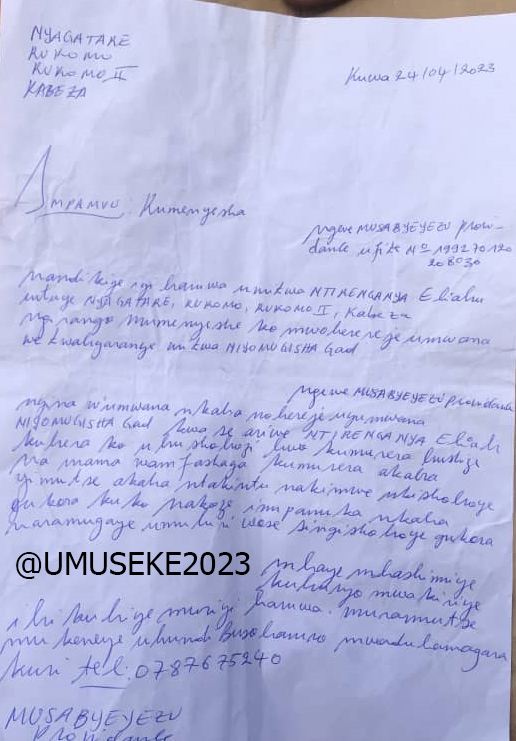 NYAGATARE
RUKOMO
RUKOMO II
KABEZA
Kuwa 24/04/2023
IMPAMVU: Kumenyesha
Ngewe MUSABYEYEZU Provi-
dance ufite No 199270120
208030
nandikiye iyi baruwa umutwa NTIRENGANYA Eliabu
utuye NYAGATARE, RUKOMO, RUKOMO II, Kabeza
ngirango mumenyeshe ko mwoherereje umwana
we twabyaranye witwa NIYOMUGISHA Gad
ngewe MUSABYEYEZU Providance
nyina w'umwana nkaba nohereje uyu mwana
NIYOMUGISHA Gad kwa se ariwe NTIRENGANYA Eliab
kubera ko ubushobozi bwo kumurera
na mama wamfashaga kumurera akaba
nkaba ntakintu nakimwe nshoboye
gukora kuko nakoze impanuka nkaba
naramugaye umubiri wose singishoboye gukora
@UMUSEKE2023
mbaye mbashimiye
kubaryo mwakiriye
ibikubiye muriyi baruwa. muramutse
mukeneye ubundi busobanuro mwaduhamagara
kuri tel: 0787675240
MUSABYEYEZU
Providance